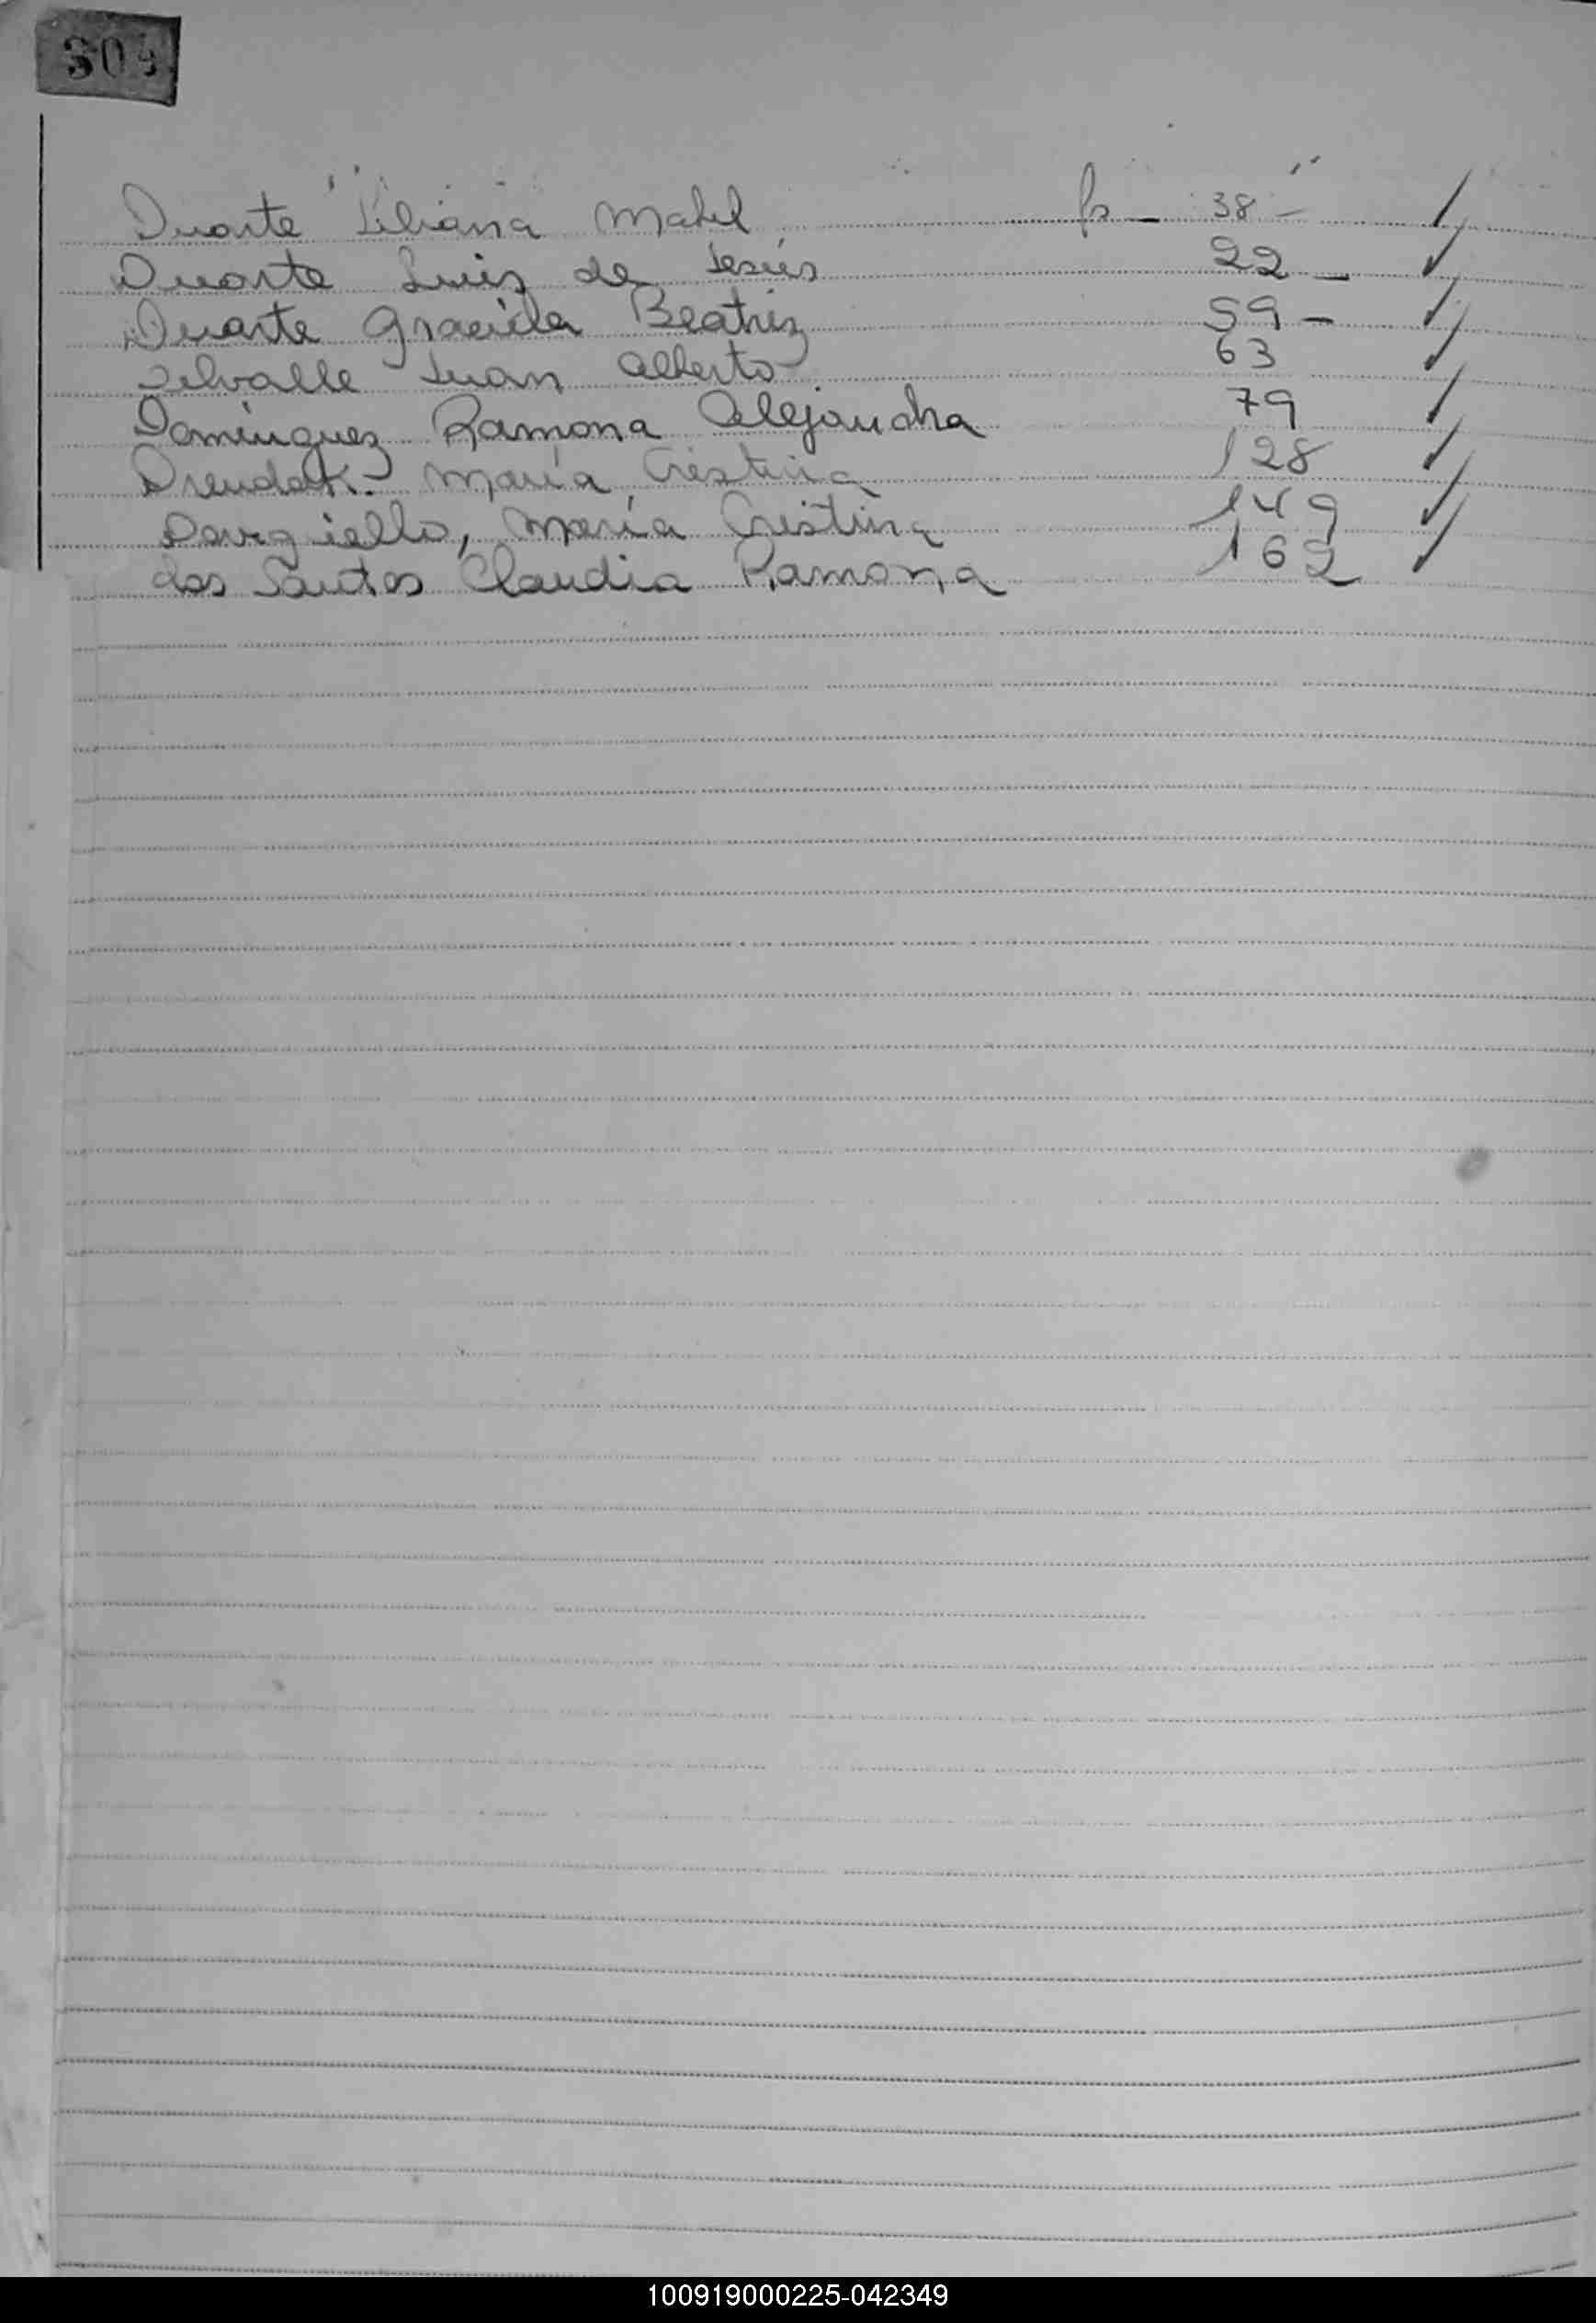 304
Duarte Liliana Mabel fs - 38 -
Duarte Luis de Jesús 22 -
Duarte Graciela Beatriz 59 -
Delvalle Juan Alberto 63
Domínguez Ramona Alejandra 79
Drendak María Cristina 128
Dargiello, María Cristina 149
dos Santos Claudia Ramona 162
100919000225-042349